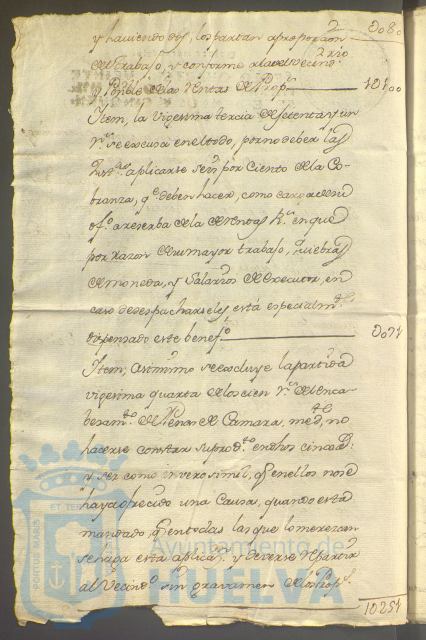 y haviendo dos, los partan a proporcion
0080
de trabajo, y conforme a la decision
y Posible de las Rentas de Prop.s
10100
Item, la Vigesima tercia de setenta y un
r.s se excusa en el todo, por no deber las
aplicarse seis por Ciento de la Co-
branza, q.e deben hacer, como cargo de su
of.o a reserba de la de Rentas R.s en que
por razon de su mayor trabajo, quiebras
de moneda, y Salarios de executor, en
caso de despacharseles está especialm.te
dispensado este benef.o
0071
Item, asimismo se excluye la partida
vigesima quarta de los cien r.s de el enca-
bezam.to de Penas de Camara, med.te no
hacerse constar su prod.to en dhos cinco a.s
y ser como inverosimil, q. en ellos no se
haya ofrecido una Causa, quando está
mandado, q. en todas las que lo merezcan
se haga esta aplica.n y deverse repartir
al Vecind.o sin gravamen de los Prop.s
10251
Ayuntamiento de
HUELVA
PORTUS MARIS
ET TERRAE